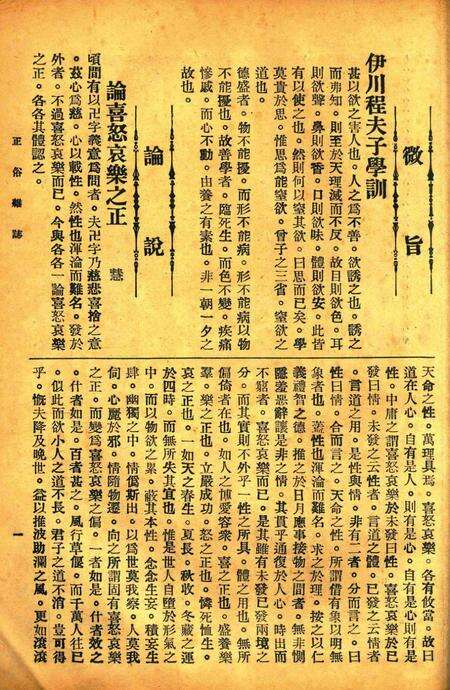 微旨
伊川程夫子學訓
甚以欲之害人也。人之為不善。欲誘之也。誘之
而弗知。則至於天理滅而不反。故目則欲色。耳
則欲聲。鼻則欲香。口則欲味。體則欲安。此皆
有以使之也。然則何以窒其欲。曰思而已矣。學
莫貴於思。惟思為能窒欲。曾子之三省。窒欲之
道也。
德盛者。物不能擾。而形不能病。形不能病以物
不能擾也。故善學者。臨死生。而色不變。疾痛
慘戚。而心不動。由養之有素也。非一朝一夕之
故也。
論說
論喜怒哀樂之正
慧
頃間有以卍字義意為問者。夫卍字乃慈悲喜捨之意
。茲心為慈。心以載性。然性也渾淪而難名。發於
外者。不過喜怒哀樂而已。今與各各一論喜怒哀樂
之正。各各其體認之。
正俗雜誌
天命之性。萬理具焉。喜怒哀樂。各有攸當。故曰
道在人心。自有是人。則有是心。自有是心則有是
性。中庸之謂喜怒哀樂於未發曰性。喜怒哀樂於已
發曰情。未發之云性者。言道之體。已發之云情者
。言道之用。是性與情。非有二者。分而言之。曰
性曰情。合而言之。天命之性。所謂借有象以明無
象者也。蓋性也渾淪而難名。求之於理。按之以仁
義禮智之德。推之於日月應事接物之間者。無非惻
隱羞惡辭讓是非之情。其貫乎通復於人心。時出而
不窮者。喜怒哀樂而已。是其雖有未發已發兩境之
分。而其實則不外乎一性之所具。體之用也。無所
偏倚者在也。如人之博愛容衆。喜之正也。盛養樂
羣。樂之正也。立嚴成功。怒之正也。憐死恤生。
哀之正也。一如天之春生。夏長。秋收。冬藏之運
於四時。而無所失其宜也。惟是世人自墮於形氣之
中。而以物欲之累。戕其本性。念念生妄。積妄生
肆。幽獨之中。情僞斯出。以為世莫我察。人莫我
伺。心嚴於邪。情隨物遷。向之所謂固有喜怒哀樂
之正。而變為喜怒哀樂之偏。一者如是。什者效之
。什者如是。百者甚之。風行草偃。而千萬人往已
。似此而欲小人之道不長。君子之道不消。豈可得
乎。慨夫降及晚世。益以推波助瀾之風。更如滾滾
一